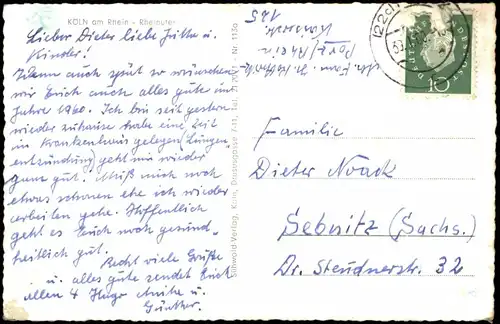 KÖLN am Rhein - Rheinufer
Lieber Dieter liebe Jutta u.
Kinder!
Wenn auch spät so wünschen
wir Euch auch alles gute im
Jahre 1960. Ich bin seit gestern
wieder zuhause habe eine Zeit
im Krankenhaus gelegen (Lungen-
entzündung) geht mir wieder
ganz gut. Muß mich noch
etwas schonen ehe ich wieder
arbeiten gehe. Hoffentlich
geht es Euch noch gesund-
heitlich gut.
Recht viele Grüße
u. alles gute sendet Euch
allen 4 Hugo Anita u.
Günther.
Nr. 113a
Porz/Rhein
10
Familie
Dieter Noack
Sebnitz (Sachs.)
Dr. Steudnerstr. 32